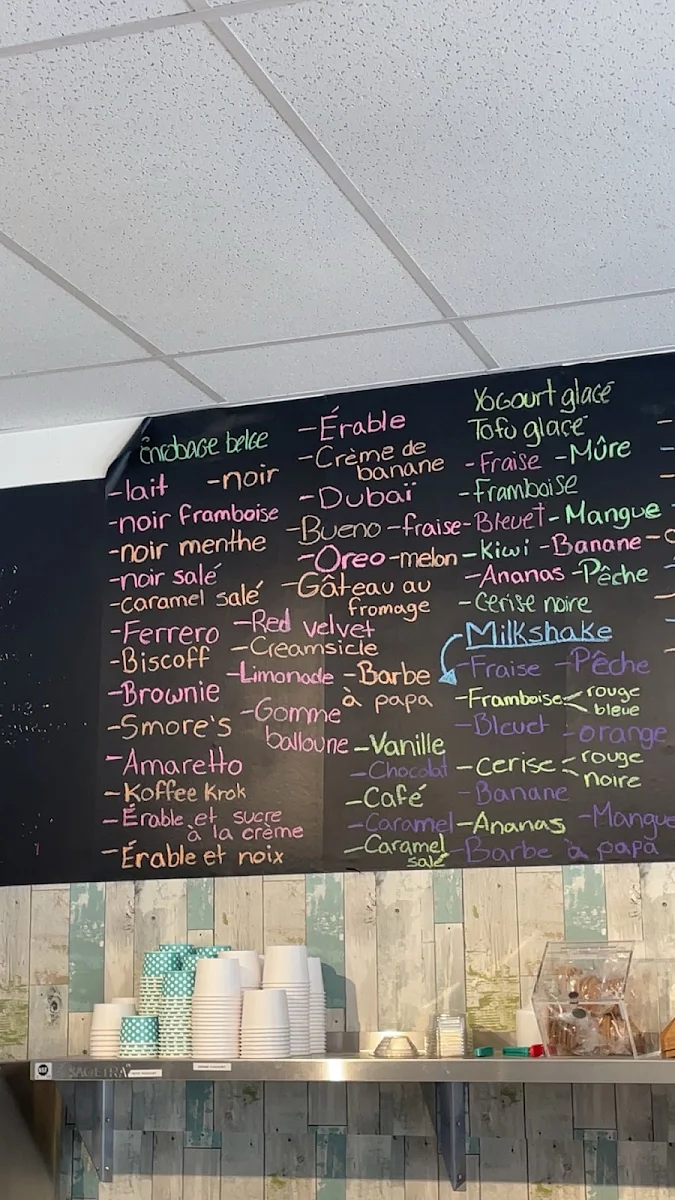 Enrobage belge
-lait -noir
-noir framboise
-noir menthe
-noir salé
-caramel salé
-Ferrero
-Biscoff
-Brownie
-Smore's
-Amaretto
-Koffee Krok
-Érable et sucre
à la crème
-Érable et noix
-Érable
-Crème de
banane
-Dubaï
-Bueno -fraise
-Oreo -melon
-Gâteau au
fromage
-Red velvet
-Creamsicle
-Limonade -Barbe
à papa
-Gomme
balloune
Yogourt glacé
Tofu glacé
-Fraise -Mûre
-Framboise
-Bleuet -Mangue
-Kiwi -Banane
-Ananas -Pêche
-Cerise noire
Milkshake
-Fraise -Pêche
-Framboise rouge
bleue
-Bleuet -orange
-Vanille
-Cerise rouge
noire
-Chocolat
-Banane
-Café
-Caramel -Ananas -Mangue
-Caramel
salé
-Barbe à papa